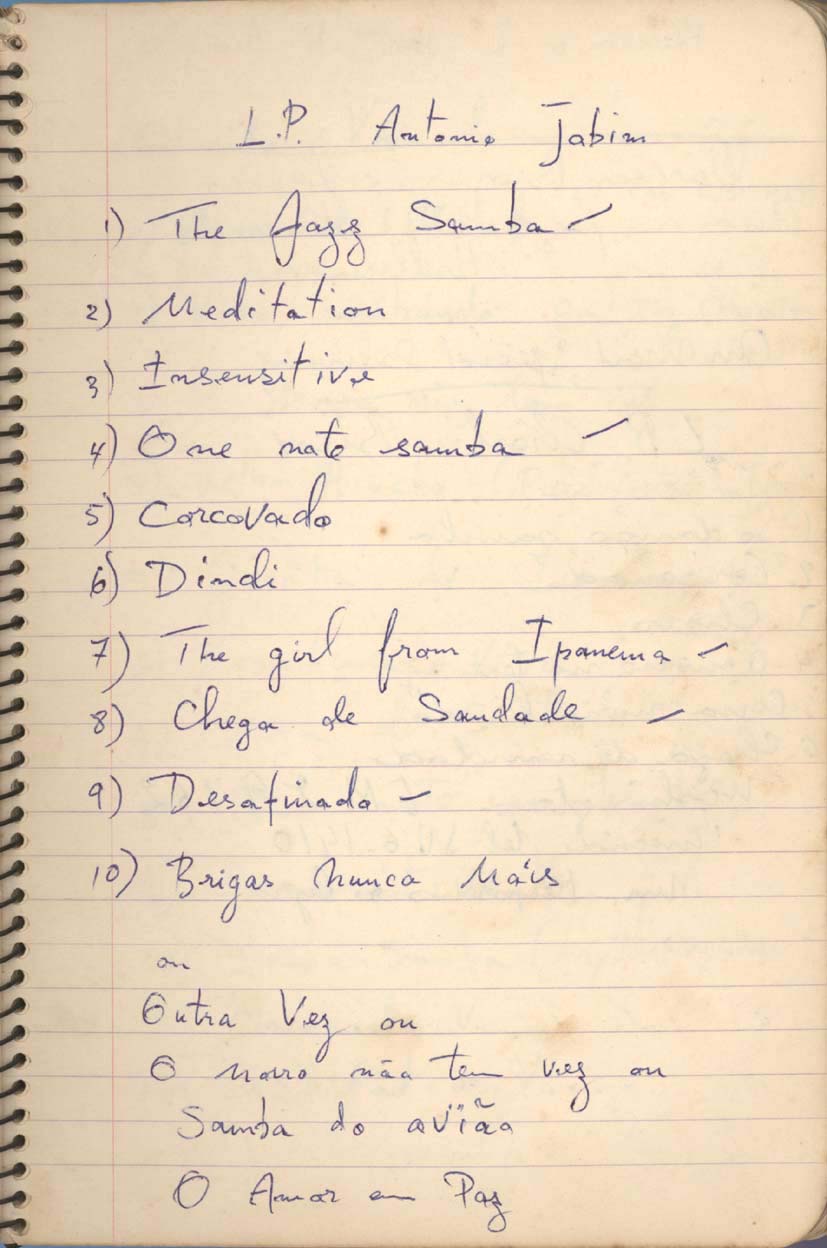 L.P. Antonio Jobim
1) The Jazz Samba –
2) Meditation
3) Insensitive
4) One note samba –
5) Corcovado
6) Dindi
7) The girl from Ipanema –
8) Chega de Saudade –
9) Desafinado –
10) Brigas nunca Máis
ou
Outra Vez ou
O morro não tem vez ou
Samba do avião
O Amor em Paz